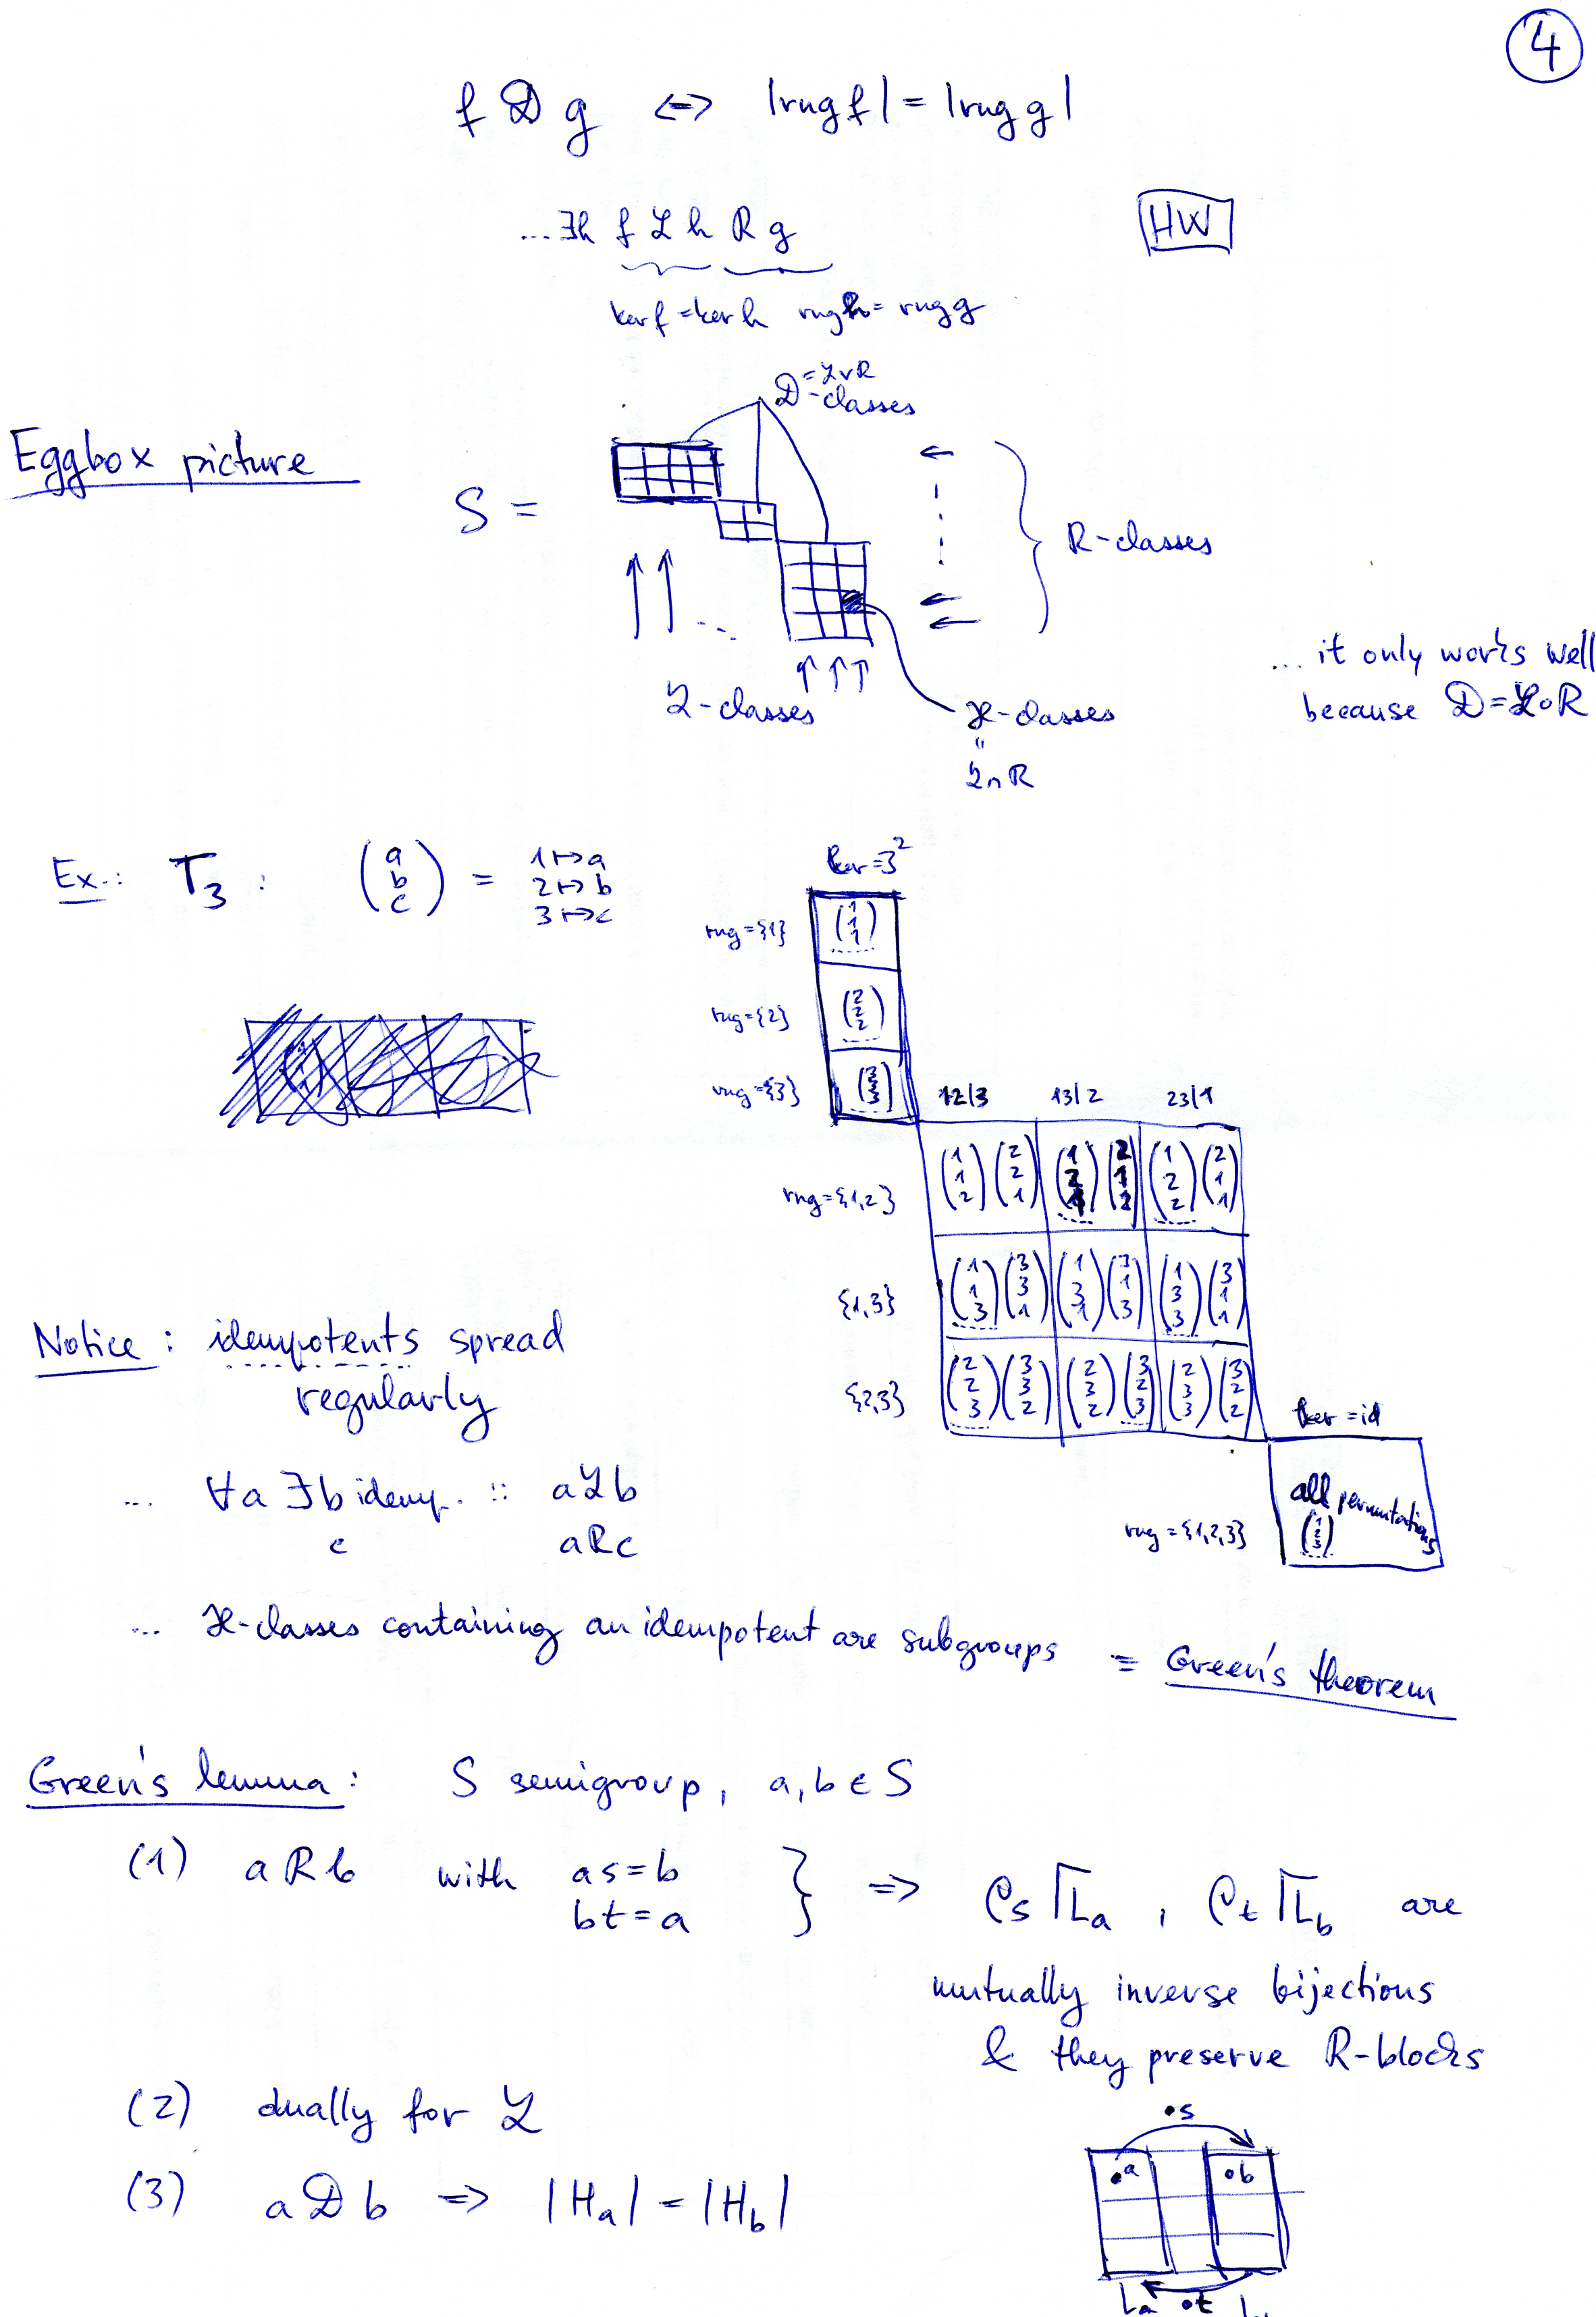 4
f 𝒟 g ↔ |rng f| = |rng g|
...∃h f ℒ h R g
HW
ker f = ker h rng h = rng g
𝒟 = ℒ∨R
-classes
Eggbox picture
S =
R-classes
... it only works well
because 𝒟 = ℒ∘R
ℒ-classes
ℋ-classes
"
ℒ∩R
Ex.: T₃ : (a b c) = 1↦a
2↦b
3↦c
ker = 3²
rng = {1} (1 1 1)
rng = {2} (2 2 2)
rng = {3} (3 3 3)
12|3 13|2 23|1
rng = {1,2} (1 1 2) (2 2 1) (1 2 1) (2 1 2) (1 2 2) (2 1 1)
{1,3} (1 1 3) (3 3 1) (1 3 1) (3 1 3) (1 3 3) (3 1 1)
{2,3} (2 2 3) (3 3 2) (2 3 2) (3 2 3) (2 3 3) (3 2 2)
ker = id
rng = {1,2,3} all permutations
(1 2 3)
Notice: idempotents spread
regularly
... ∀a ∃b idemp. :: a ℒ b
c a R c
... ℋ-classes containing an idempotent are subgroups = Green's theorem
Green's lemma: S semigroup, a, b ∈ S
(1) a R b with as = b
bt = a
} ⇒ ρs↾La , ρt↾Lb are
mutually inverse bijections
& they preserve R-blocks
(2) dually for ℒ
(3) a 𝒟 b ⇒ |Ha| = |Hb|
•s
•a •b
La •t